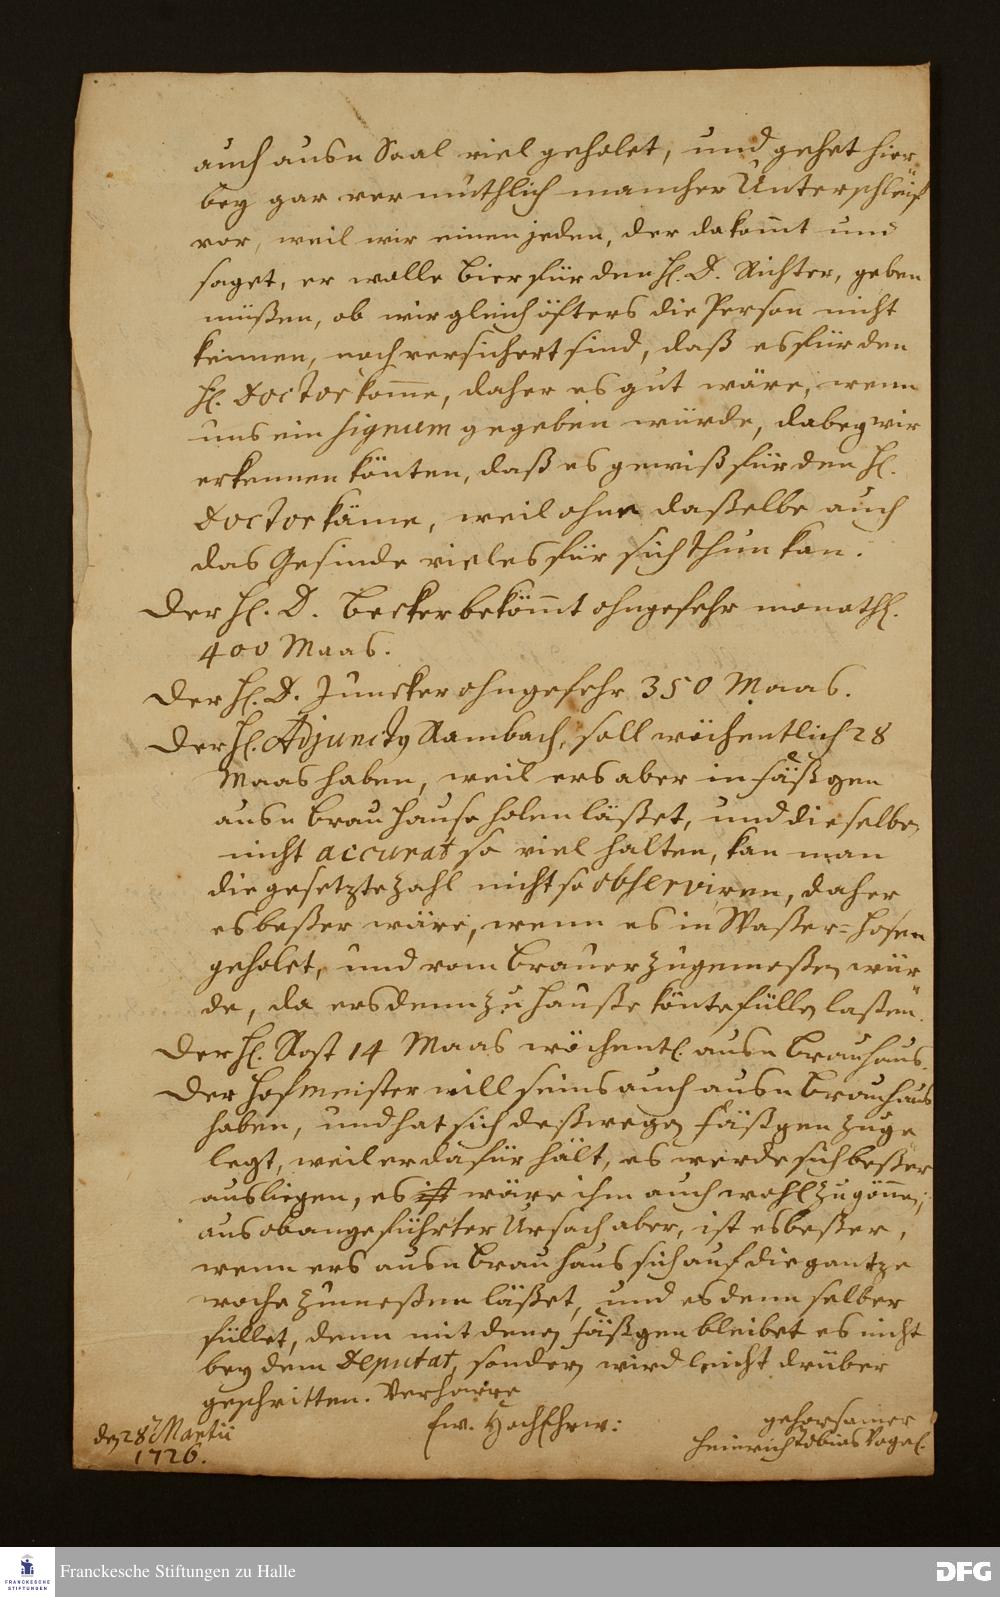 auch ausn Saal viel geholet, und gehet hier
bey gar vermuthlich mancher Unterschleif
vor, weil wir einen jeden, der da kom̄t und
saget, er wolle Bier für den H. D. Richter, geben
müßen, ob wir gleich öfters die Person nicht
kennen, noch versichert sind, daß es für den
H. Doctor kom̄e, daher es gut wäre, wenn
uns ein signum gegeben würde, dabey wir
erkennen könten, daß es gewiß für den H.
Doctor käme, weil ohne daßelbe auch
das Gesinde vieles für sich thun kan.
Der H. D. Becker beköm̄t ohngefehr monathl.
400 Maas.
Der H. D. Juncker ohngefehr 350 Maas.
Der H. Adjunctg Rambach, soll wöchentlich 28
Maas haben, weil ers aber in Fäßgen
ausn Brauhause holen läßet, und dieselben
nicht accurat so viel halten, kan man
die gesetzte Zahl nicht so observiren, daher
es beßer wäre, wenn es in Waßer=
geholet, und vom Brauer zugemeßen wür
de, da ers denn zu Hauße könte füllen laßen.
Der H. Rost 14 Maas wöchentl. ausn Brauhaus.
Der Hofmeister will seins auch ausn Brauhaus
haben, und hat sich deßwegen Fäßgen zuge
legt, weil er dafür hält, es werde sich beßer
ausliegen, es ist wäre ihm auch wohl zu gönnen;
aus obangeführter Ursach aber, ist es beßer,
wenn ers ausn Brauhaus sich auf die gantze
Woche zumeßen läßet, und es denn selber
füllet, denn mit denen Fäßgen bleibet es nicht
bey dem Deputat, sondern wird leicht drüber
geschritten. Verharre
Ew. HochEhrw:
gehorsamer
Heinrich Tobias Vogel.
den 28 Martii
1726.
Franckesche Stiftungen zu Halle
FRANCKESCHE
STIFTUNGEN
DFG